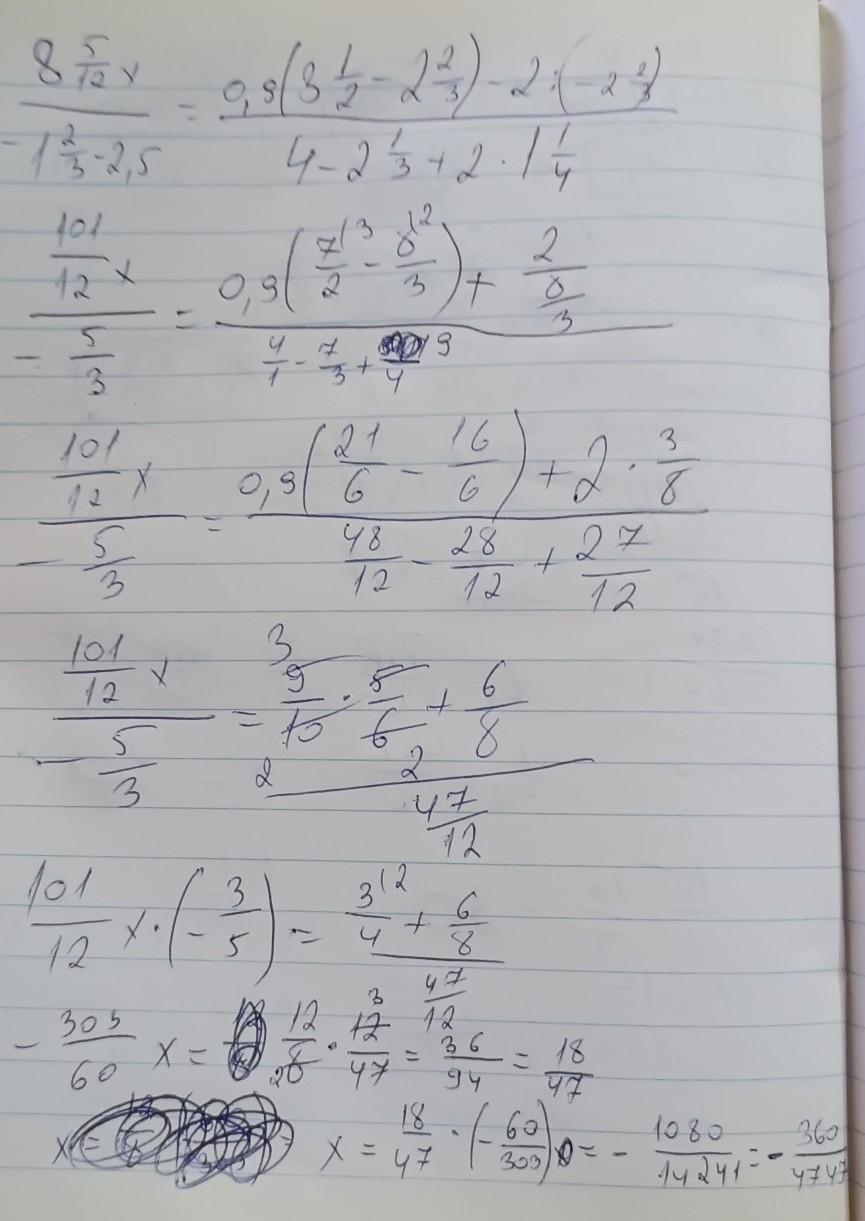 8 5/12 x / (-1 2/3 - 2,5) = (0,9(3 1/2 - 2 2/3) - 2 : (-2 2/3)) / (4 - 2 1/3 + 2 · 1 1/4)
(101/12 x) / (- 5/3) = (0,9(7/2^(3 - 8/3^(2) + 2/(8/3)) / (4/1 - 7/3 + 9/4)
(101/12 x) / (- 5/3) = (0,9(21/6 - 16/6) + 2 · 3/8) / (48/12 - 28/12 + 27/12)
(101/12 x) / (- 5/3) = (9/10 · 5/6 + 6/8) / (47/12) 3 2 2
101/12 x · (- 3/5) = (3/4^(2 + 6/8) / (47/12)
- 303/60 x = 12/8 · 12/47 = 36/94 = 18/47 3 2
x = 18/47 · (- 60/303) = - 1080/14241 = - 360/4747